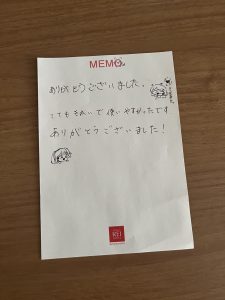 MEMO
ありがとうございました。
とてもきれいで使いやすかったです
ありがとうございました！
REI